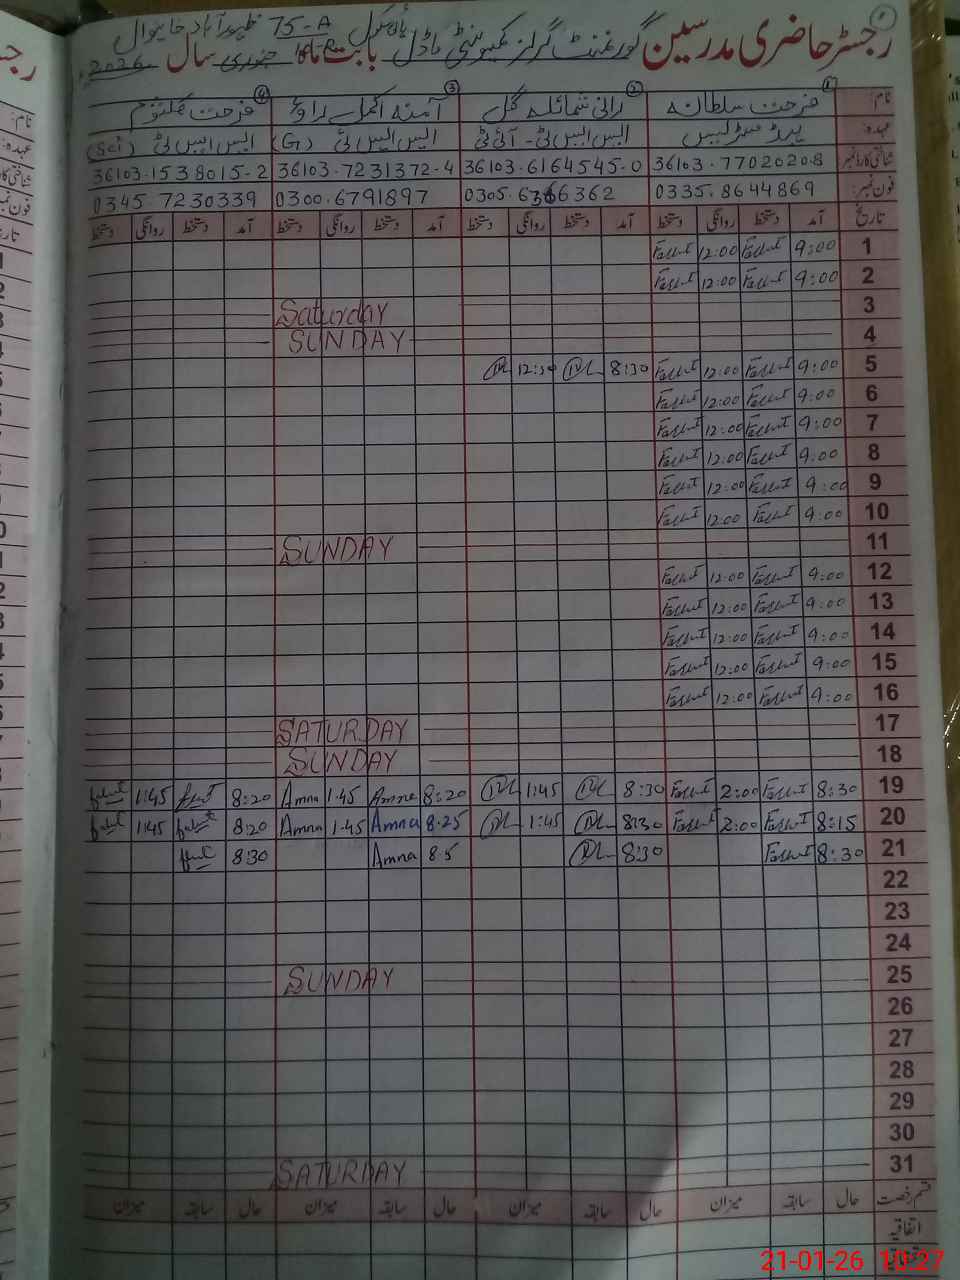 رجسٹر حاضری مدرسین گورنمنٹ گرلز کمیونٹی ماڈل ہائی سکول 75-A ظہور آباد خانیوال
بابت ماہ جنوری سال 2026
نام: فرحت سلطانہ رانی شمائلہ گل آمنہ اکمل راؤ فرحت کلثوم
عہدہ: ہیڈ مسٹریس ایس ایس ٹی - آئی ٹی ایس ایس ٹی (G) ایس ایس ٹی (Sci)
شناختی کارڈ نمبر 36103-7702020-8 36103-6164545-0 36103-7231372-4 36103-1538015-2
فون نمبر: 0335-8644869 0305-6366362 0300-6791897 0345 7230339
تاریخ آمد دستخط روانگی دستخط آمد دستخط روانگی دستخط آمد دستخط روانگی دستخط آمد دستخط روانگی دستخط
1 9:00 12:00
2 9:00 12:00
3 Saturday
4 SUNDAY
5 9:00 12:00 8:30 12:30
6 9:00 12:00
7 9:00 12:00
8 9:00 12:00
9 9:00 12:00
10 9:00 12:00
11 SUNDAY
12 9:00 12:00
13 9:00 12:00
14 9:00 12:00
15 9:00 12:00
16 9:00 12:00
17 SATURDAY
18 SUNDAY
19 8:30 2:00 8:30 1:45 8:20 Amna 1.45 Amna 8:20 1:45
20 8:15 2:00 8:30 1:45 8.25 Amna 1.45 Amna 8:20 1:45
21 8:30 8:30 8.5 Amna 8:30
22
23
24
25 SUNDAY
26
27
28
29
30
31 SATURDAY
قسم رخصت حال سابقہ میزان حال سابقہ میزان حال سابقہ میزان حال سابقہ میزان
اتفاقیہ
21-01-26 10:27